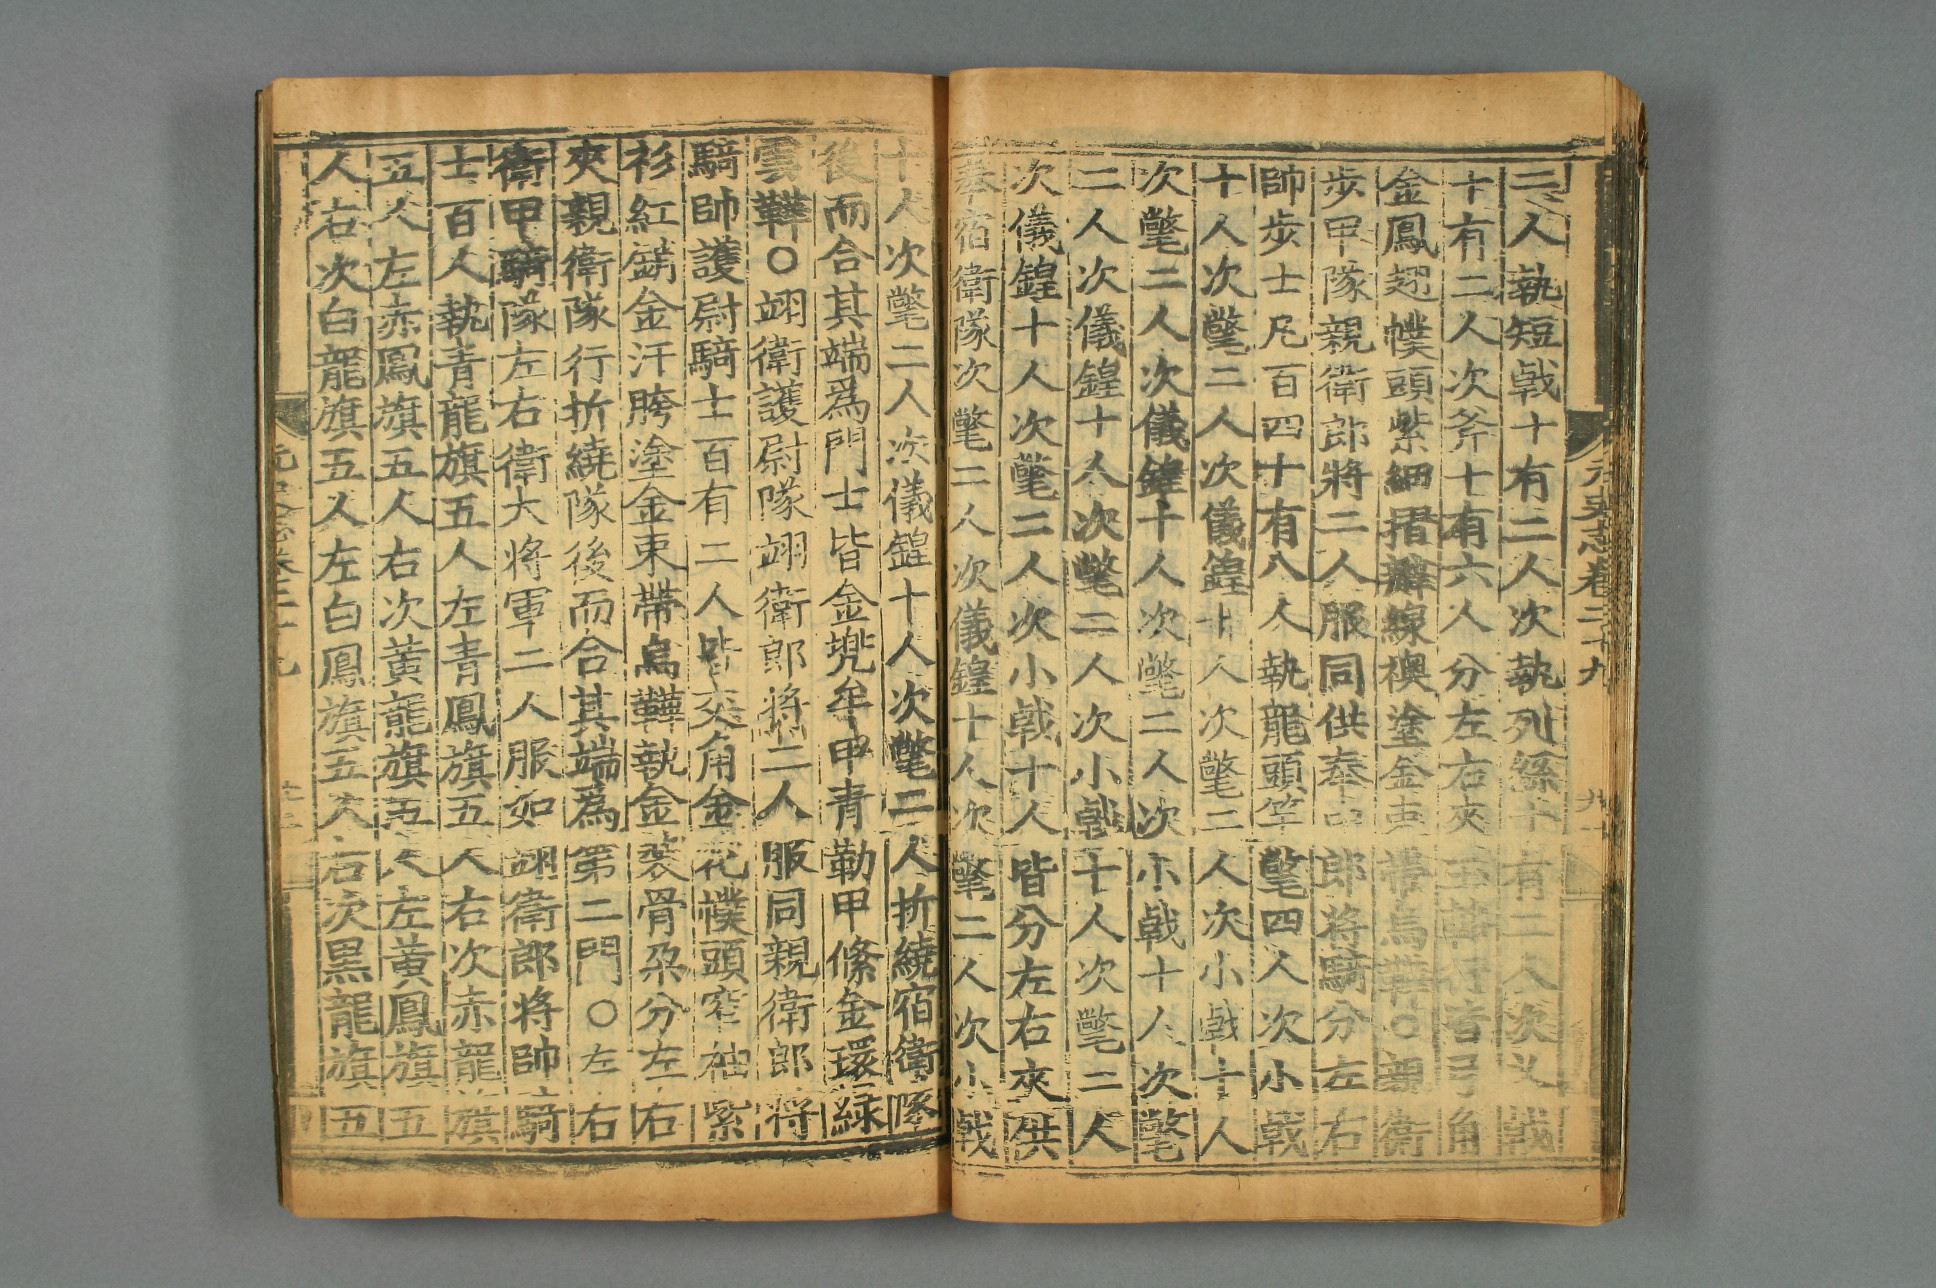 元史志卷二十九
三人執短戟十有二人次執列絲十有二人次叉戟
十有二人次斧十有六人分左右夾玉輅行者弓角
金鳳翅幞頭紫細摺辮線襖塗金束帶烏鞾○親衛
步甲隊親衛郎將二人服同供奉中郎將騎分左右
帥步士凡百四十有八人執龍頭竿氅四人次小戟
十人次氅二人次儀鍠十人次氅二人次小戟十人
次氅二人次儀鍠十人次氅二人次小戟十人次氅
二人次儀鍠十人次氅二人次小戟十人次氅二人
次儀鍠十人次氅二人次小戟十人皆分左右夾供
奉宿衛隊次氅二人次儀鍠十人次氅二人次小戟
十人次氅二人次儀鍠十人次氅二人折繞宿衛隊
後而合其端爲門士皆金兠牟甲青勒甲絛金環緑
雲鞾○翊衛護尉隊翊衛郎將二人服同親衛郎將
騎帥護尉騎士百有二人皆交角金花幞頭窄袖紫
衫紅錆金汗胯塗金束帶烏鞾執金裝骨朶分左右
夾親衛隊行折繞隊後而合其端爲第二門○左右
衛甲騎隊左右衛大將軍二人服如翊衛郎將帥騎
士百人執青龍旗五人左青鳳旗五人右次赤龍旗
五人左赤鳳旗五人右次黃龍旗五人左黃鳳旗五
人右次白龍旗五人左白鳳旗五人右次黒龍旗五
元史志卷二十九